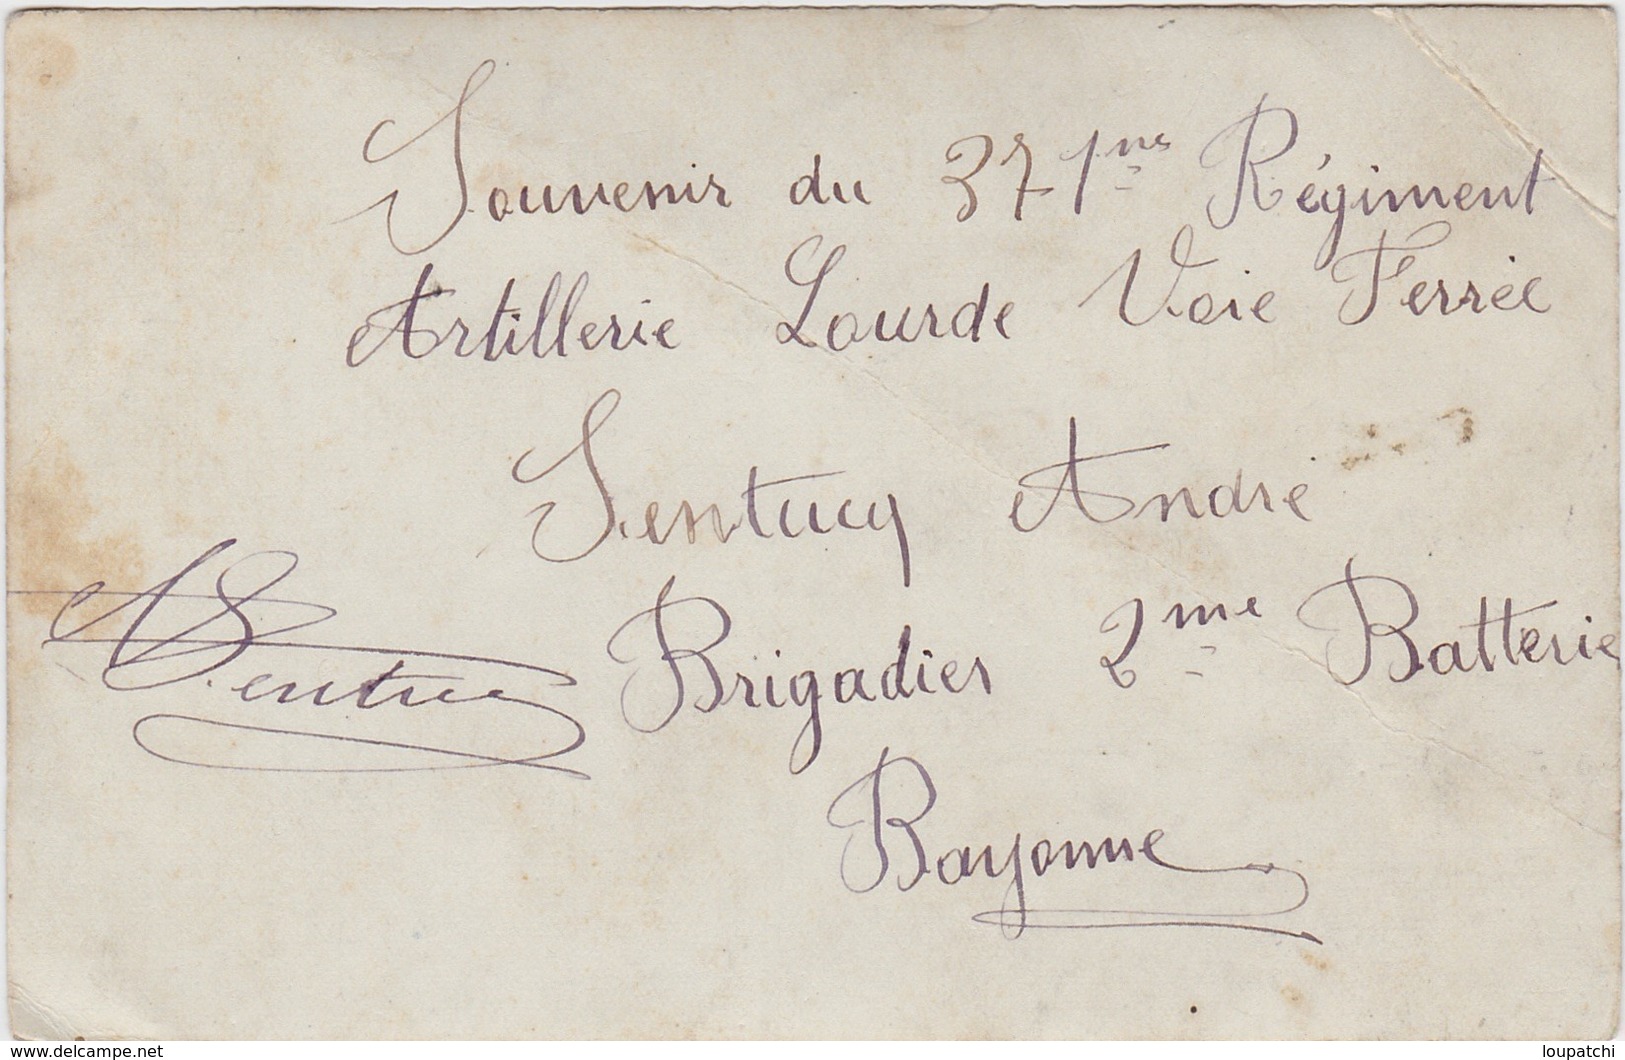 Souvenir du 371me Régiment
Artillerie Lourde Voie Ferrée
Sentucq André
Brigadier 2me Batterie
Bayonne
A Sentucq
delcampe.net
loupatchi